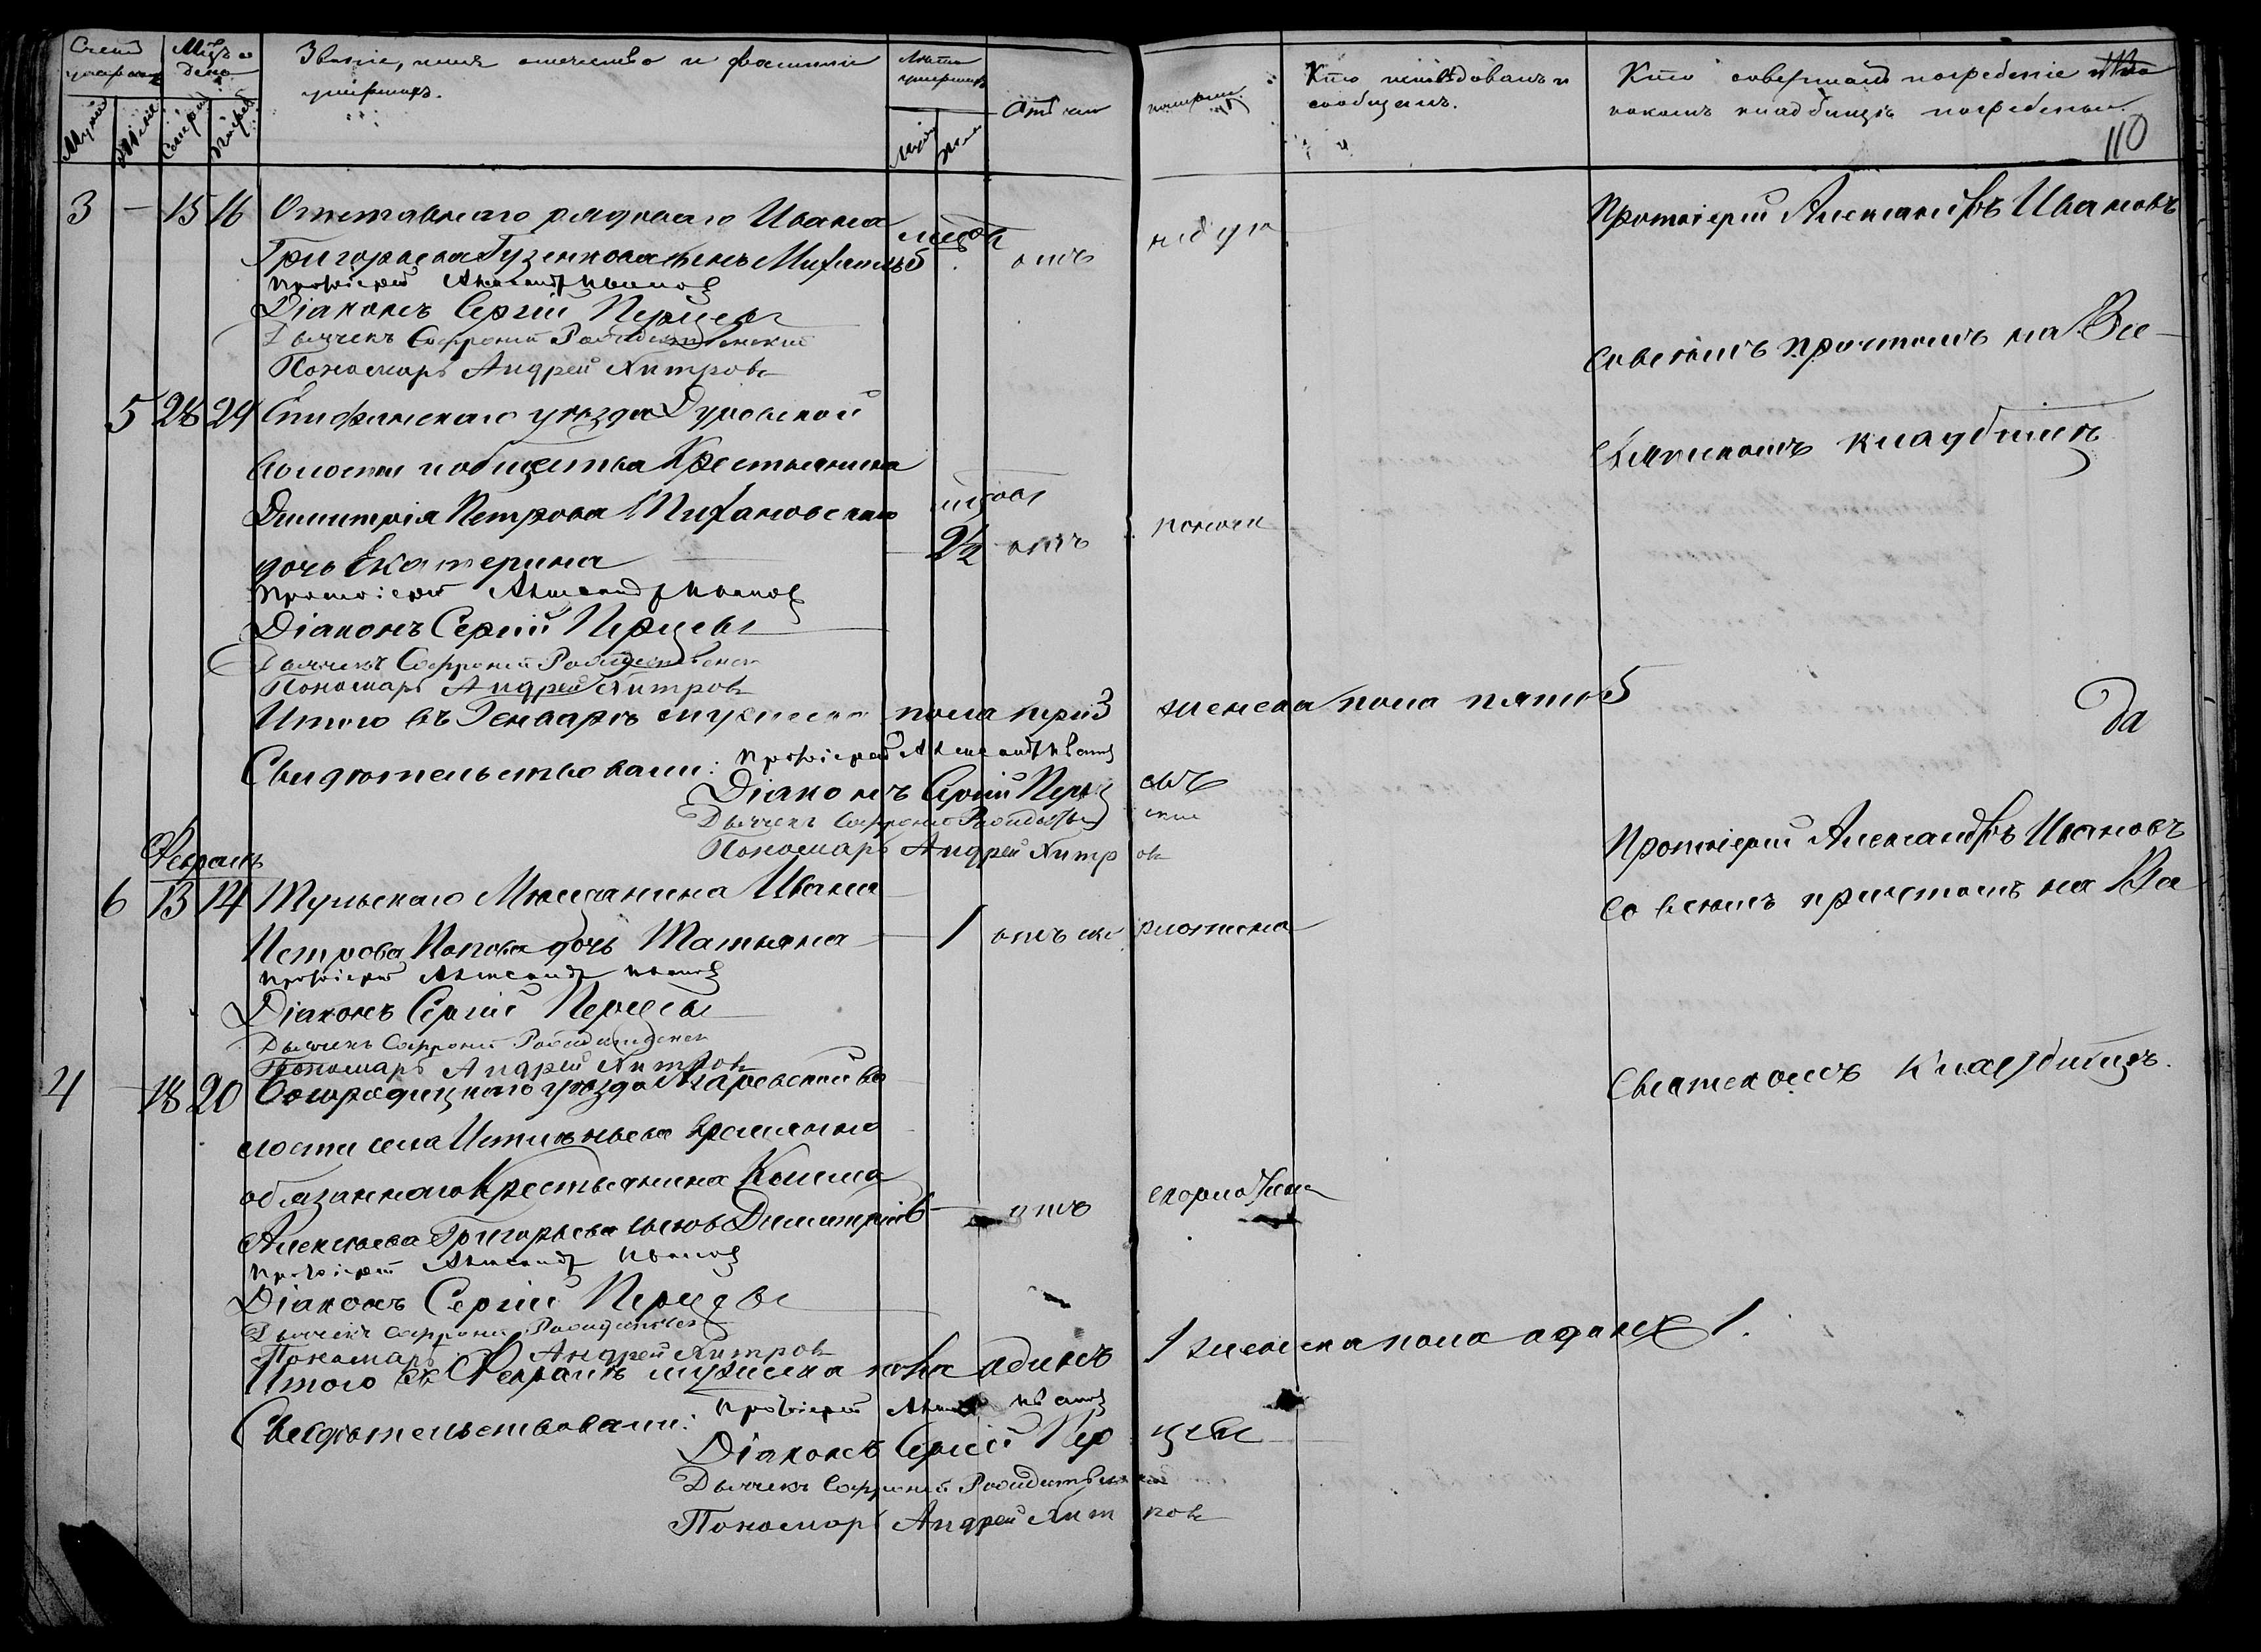 Счетъ умершихъ
Мѣц: и день
Званіе, имя отчество и фамилія умершихъ.
Лѣта умершихъ
Отъ чего
померли.
Кто исповѣдовалъ и сообщалъ.
Кто совершалъ погребеніе и
какомъ кладбищѣ погребены.
110
3 — 15 16 Отставнаго рядоваго Ивана
Григорьева сынъ Михаилъ 6 отъ недуга
Протоіерей Александръ Ивановъ
Діаконъ Сергій Перцевъ
Дьячекъ Софроній Рождественскій
Пономарь Андрей Хитровъ
Протоіерей Александръ Ивановъ
со всѣмъ причтомъ на Все-
святскомъ кладбищѣ
5 28 29 Епифанскаго уѣзда
волости и общества Крестьянина
Димитрія Петрова
дочь Екатерина 2½ отъ
Протоіерей Александръ Ивановъ
Діаконъ Сергій Перцевъ
Дьячекъ Софроній Рождественск
Пономарь Андрей Хитровъ
Итого въ Генварѣ мужеска пола три 3 женска пола пять 5
Свидѣтельствовали: Протоіерей Александръ Ивановъ
Діаконъ Сергій Перцевъ
Дьячекъ Софроній Рождественскій
Пономарь Андрей Хитровъ
Февраль
6 13 14 Тульскаго Мѣщанина Ивана
Петрова Попова дочь Татьяна — 1 отъ
Протоіерей Александръ Ивановъ
Діаконъ Сергій Перцевъ
Дьячекъ Софроній Рождественск
Пономарь Андрей Хитровъ
Протоіерей Александръ Ивановъ
со всѣмъ причтомъ на Все
святскомъ кладбищѣ.
4 — 18 20 Богородицкаго уѣзда во
лости села временно
обязаннаго Крестьянина
Алексѣева Григорьева сынъ Димитрій 6 — отъ
Протоіерей Александръ Ивановъ
Діаконъ Сергій Перцевъ
Дьячекъ Софроній Рождественск
Пономарь Андрей Хитровъ
Итого въ Февралѣ мужеска пола одинъ 1 женска пола одинъ 1.
Свидѣтельствовали: Протоіерей Ивановъ
Діаконъ Сергій Перцевъ
Дьячекъ Софроній Рождественскій
Пономарь Андрей Хитровъ